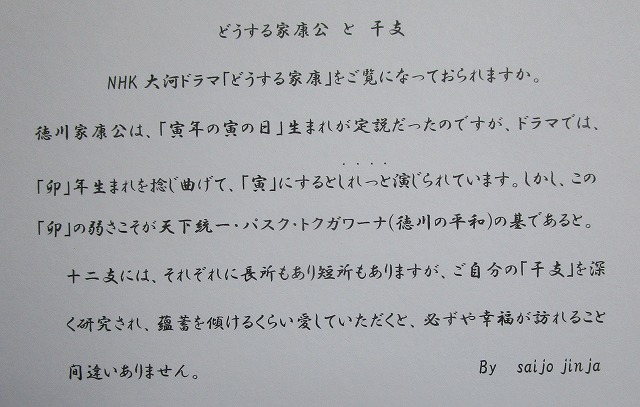 どうする家康公 と 干支
NHK 大河ドラマ「どうする家康」をご覧になっておられますか。
徳川家康公は、「寅年の寅の日」生まれが定説だったのですが、ドラマでは、
「卯」年生まれを捻じ曲げて、「寅」にするとしれっと演じられています。しかし、この
「卯」の弱さこそが天下統一・パスク・トクガワーナ(徳川の平和)の基であると。
十二支には、それぞれに長所もあり短所もありますが、ご自分の「干支」を深
く研究され、蘊蓄を傾けるくらい愛していただくと、必ずや幸福が訪れること
間違いありません。 By saijo jinja